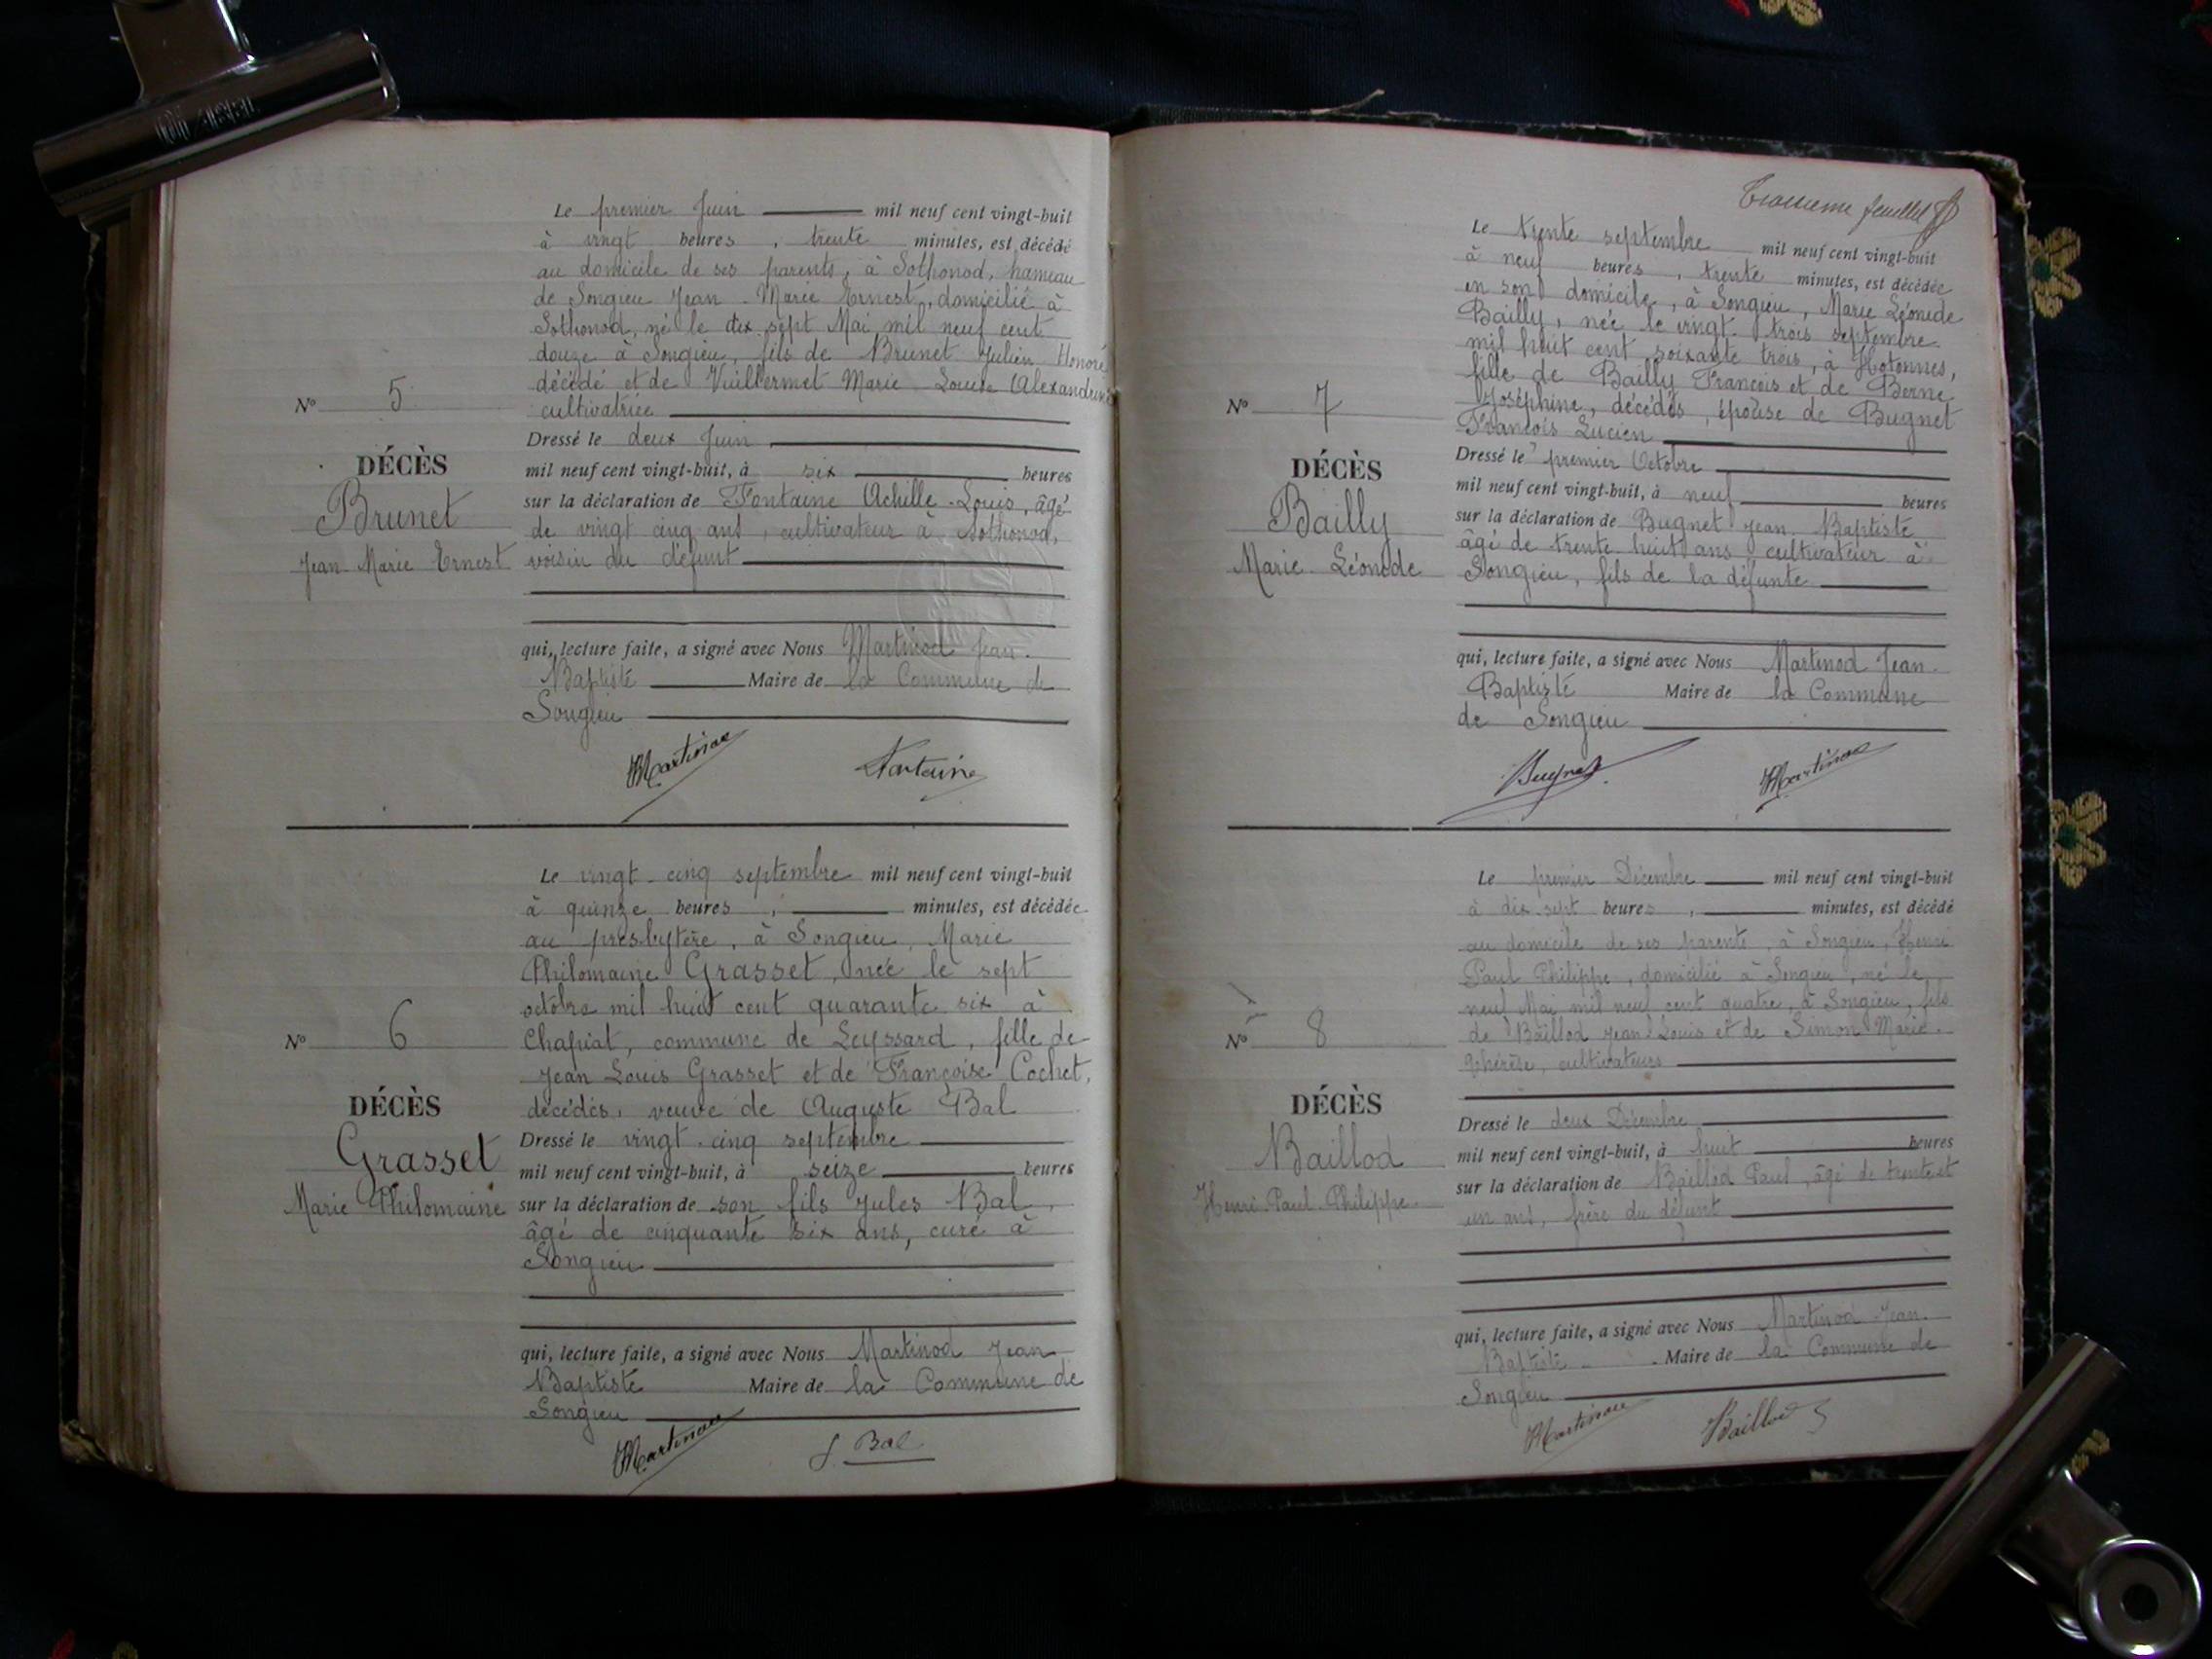 Le premier Juin mil neuf cent vingt-huit
à vingt heures, trente minutes, est décédé
au domicile de ses parents, à Sothonod, hameau
de Songieu Jean-Marie Ernest, domicilié à
Sothonod, né le dix sept Mai mil neuf cent
douze à Songieu, fils de Brunet Julien Honoré
décédé et de Vuillermet Marie-Louise Alexandrine
cultivatrice
Nº 5
DÉCÈS
Brunet
Jean-Marie Ernest
Dressé le deux Juin
mil neuf cent vingt-huit, à six heures
sur la déclaration de Fontaine Achille-Louis, âgé
de vingt cinq ans, cultivateur à Sothonod,
voisin du défunt
qui, lecture faite, a signé avec Nous Martinod Jean-
Baptiste Maire de la Commune de
Songieu
Martinod Fontaine
Le vingt-cinq septembre mil neuf cent vingt-huit
à quinze heures, minutes, est décédée
au presbytère, à Songieu, Marie
Philomaine Grasset, née le sept
octobre mil huit cent quarante six à
Chapiat, commune de Leyssard, fille de
Jean Louis Grasset et de Françoise Cochet,
décédés, veuve de Auguste Bal
Nº 6
DÉCÈS
Grasset
Marie Philomaine
Dressé le vingt-cinq septembre
mil neuf cent vingt-huit, à seize heures
sur la déclaration de son fils Jules Bal,
âgé de cinquante six ans, curé à
Songieu
qui, lecture faite, a signé avec Nous Martinod Jean
Baptiste Maire de la Commune de
Songieu
Martinod J. Bal
Troisième feuillet
Le trente septembre mil neuf cent vingt-huit
à neuf heures, trente minutes, est décédée
en son domicile, à Songieu, Marie Léonide
Bailly, née le vingt-trois septembre
mil huit cent soixante trois, à Hotonnes,
fille de Bailly François et de Berne
Joséphine, décédés, épouse de Bugnet
François Lucien
Nº 7
DÉCÈS
Bailly
Marie-Léonide
Dressé le premier Octobre
mil neuf cent vingt-huit, à neuf heures
sur la déclaration de Bugnet Jean-Baptiste
âgé de trente-huit ans cultivateur à
Songieu, fils de la défunte
qui, lecture faite, a signé avec Nous Martinod Jean-
Baptiste Maire de la Commune
de Songieu
Bugnet Martinod
Le premier Décembre mil neuf cent vingt-huit
à dix-sept heures, minutes, est décédé
au domicile de ses parents, à Songieu, Henri
Paul Philippe, domicilié à Songieu, né le
neuf Mai mil neuf cent quatre, à Songieu, fils
de Baillod Jean Louis et de Simon Marie-
Thérèse, cultivateurs
Nº 8
DÉCÈS
Baillod
Henri-Paul-Philippe
Dressé le deux Décembre
mil neuf cent vingt-huit, à huit heures
sur la déclaration de Baillod Paul, âgé de trente et
un ans, frère du défunt
qui, lecture faite, a signé avec Nous Martinod Jean-
Baptiste Maire de la Commune de
Songieu
Martinod Baillod